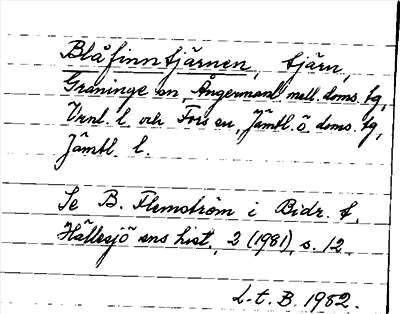 Blåfinntjärnen, tjärn,
Graninge sn, Ångermanl. mell. doms. tg,
Vrnl. l. och Fors sn, Jämtl. ö. doms. tg,
Jämtl. l.
Se B. Flemström i Bidr. t.
Hällesjö sns hist., 2 (1981), s. 12.
L. t. B. 1982.